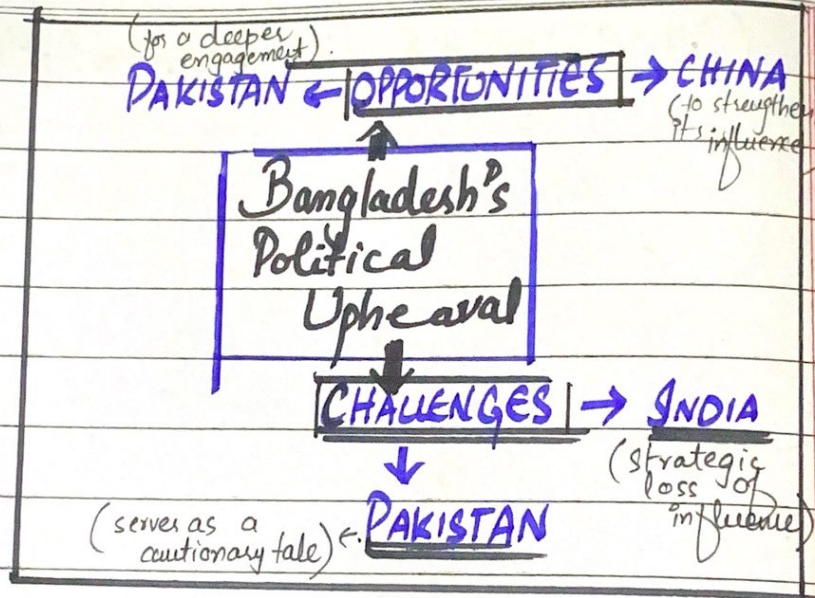 (for a deeper
engagement).
PAKISTAN ← OPPORTUNITIES → CHINA
(to strengthen
its influence
Bangladesh's
Political
Upheaval
CHALLENGES → INDIA
(strategic
loss of
influence)
PAKISTAN
(serves as a
cautionary tale)